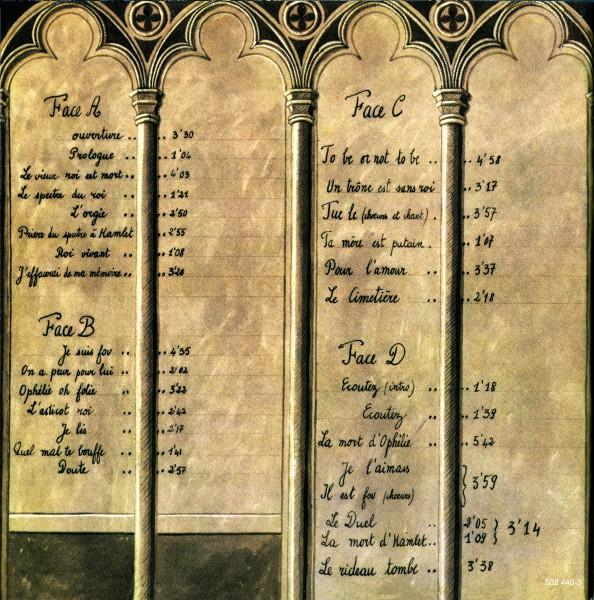 Face A
ouverture .. .. 3'30
Prologue .. .. 1'04
Le vieux roi est mort .. .. 4'03
Le spectre du roi .. .. 1'21
L'orgie .. .. 2'50
Prière du spectre à Hamlet .. 2'55
Roi vivant .. .. 1'08
J'effacerai de ma mémoire .. .. 3'20
Face B
Je suis fou .. .. 4'35
On a peur pour lui .. .. 2'02
Ophélie oh folie .. .. 3'22
L'asticot roi .. .. 2'42
Je lis .. .. 2'17
Quel mal te bouffe .. .. 1'41
Doute .. .. 2'57
Face C
To be or not to be .. .. 4'58
Un trône est sans roi .. 3'17
Tue le (choeurs et chant) . .. 3'57
Ta mère est putain . .. 1'07
Pour l'amour .. .. 3'37
Le Cimetière .. .. 2'18
Face D
Ecoutez (intro) .. .. 1'18
Ecoutez .. .. 1'39
La mort d'Ophélie .. .. 5'42
Je l'aimais
3'59
Il est fou (choeurs)
Le Duel .. 2'05
3'14
La mort d'Hamlet .. 1'09
Le rideau tombe .. .. 3'38
538 440-3